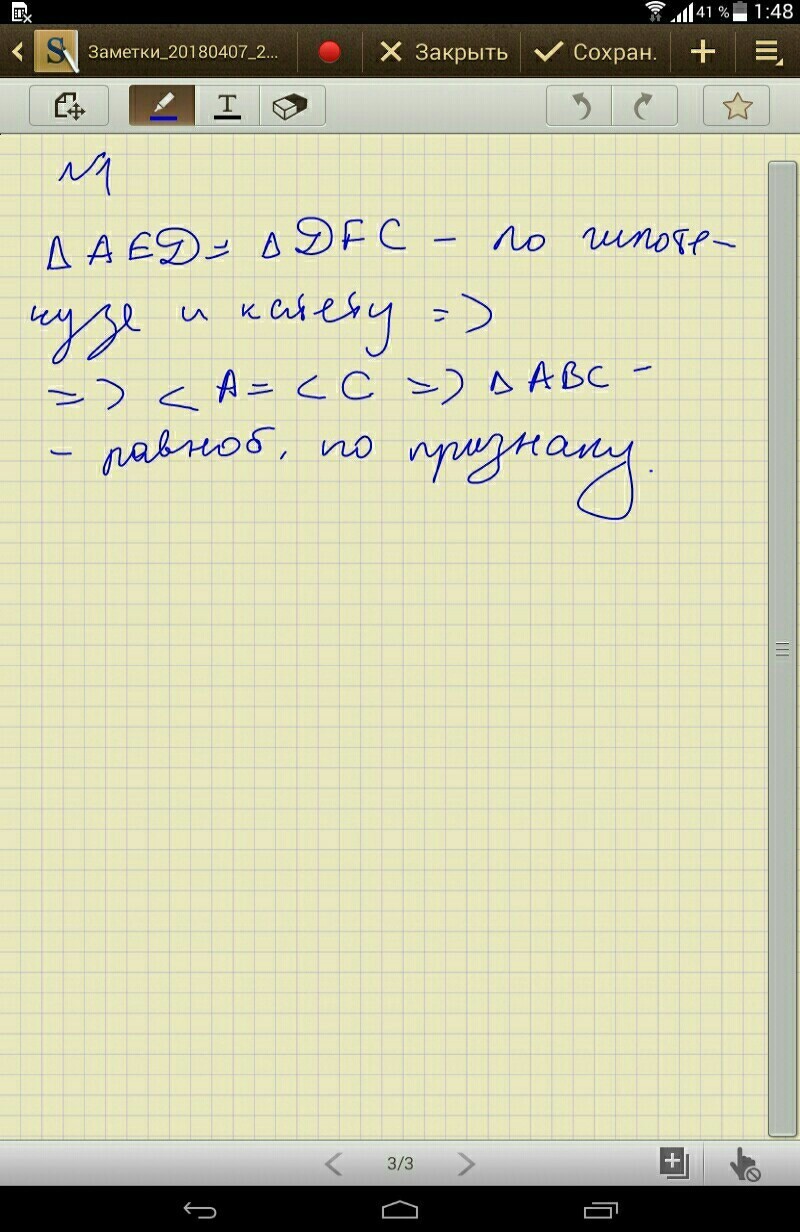 41 % 1:48
Заметки_20180407_2... Закрыть Сохран.
T
N1
Δ AED = Δ DFC - по гипоте-
нузе и катету =>
=> < A = < C => Δ ABC -
- равноб. по признаку.
3/3